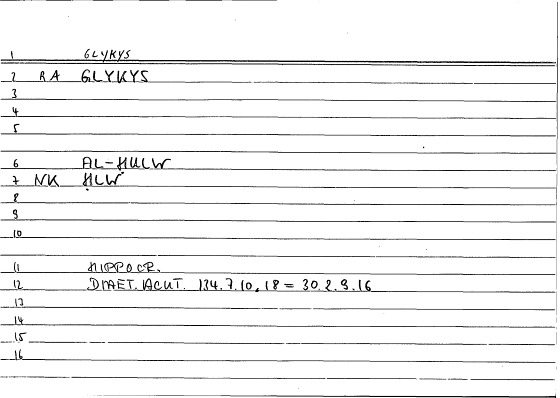 1 GLYKYS
2 RA GLYKYS
3
4
5
6 AL-ḤULW
7 NK ḤLW
8
9
10
11 HIPPOCR.
12 DIAET. ACUT. 134.7.10,18 = 30.2.9.16
13
14
15
16